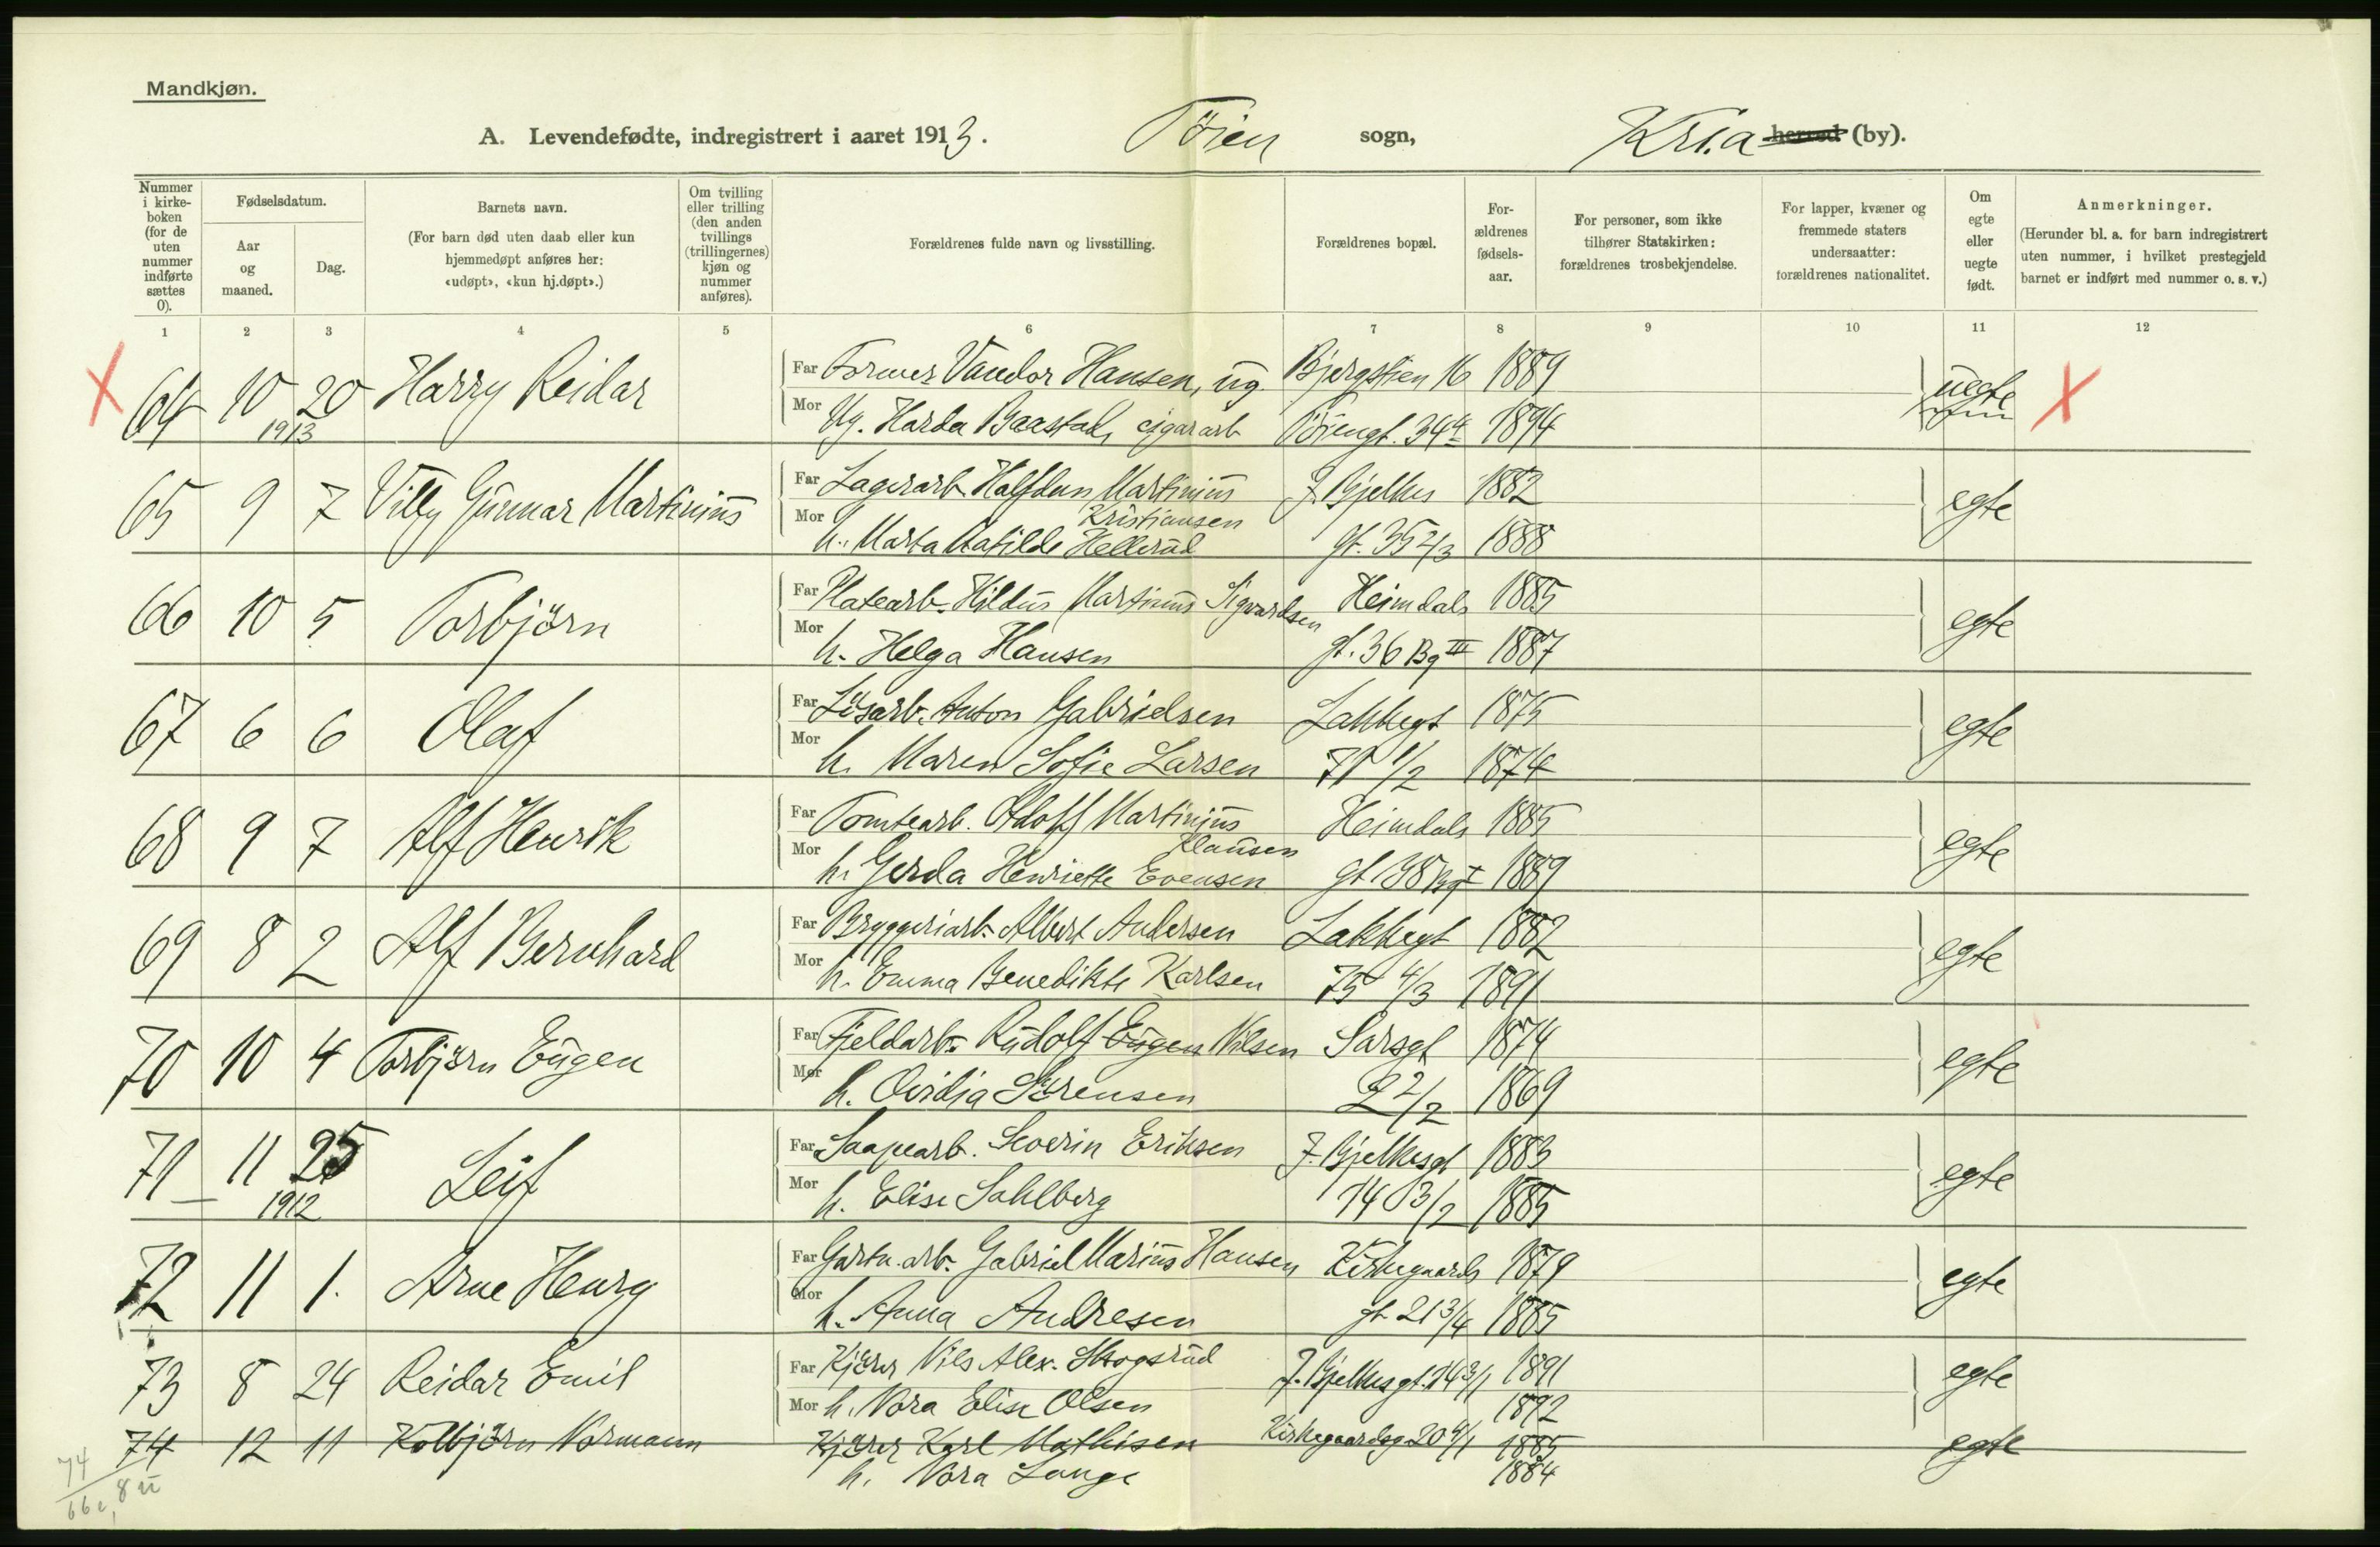 Mandkjøn.
A. Levendefødte, indregistrert i aaret 1913. Töien sogn, Kr.i.a herred (by).
Nummer i kirkeboken (for de uten nummer indførte sættes 0).
Fødselsdatum.
Aar og maaned.
Dag.
Barnets navn.
(For barn død uten daab eller kun hjemmedøpt anføres her: «udøpt», «kun hj.døpt».)
Om tvilling eller trilling (den anden tvillings (trillingernes) kjøn og nummer anføres).
Forældrenes fulde navn og livsstilling.
Forældrenes bopæl.
Forældrenes fødselsaar.
For personer, som ikke tilhører Statskirken: forældrenes trosbekjendelse.
For lapper, kvæner og fremmede staters undersaatter: forældrenes nationalitet.
Om egte eller uegte født.
Anmerkninger.
(Herunder bl. a. for barn indregistrert uten nummer, i hvilket prestegjeld barnet er indført med nummer o. s. v.)
1 2 3 4 5 6 7 8 9 10 11 12
X 64 10 20 Harry Reidar Far Former Vandor Hansen, ug. Bjergstien 16 1889 uegte X
1913 Mor Ug. Harda Baastad, cigararb Töiengt. 34 1894
65 9 7 Villy Gunnar Martinius Far Lagerarb. Halfdan Martinius J. Bjelkes 1882 egte
Kristiansen
Mor h. Marta Matilde Hellerud gt. 35 2/3 1888
66 10 5 Torbjörn Far Platearb. Hildus Martinus Sigvardsen Heimdals 1885 egte
Mor h. Helga Hansen gt. 36 Bg III 1887
67 6 6 Olaf Far Lösarb. Anton Gabrielsen Lakkegt 1875 egte
Mor h. Maren Sofie Larsen 71 1/2 1874
68 9 7 Alf Henrik Far Tomtearb. Adolf Martinius Heimdals 1885 egte
Klausen
Mor h. Gerda Henriette Evensen gt 1889
69 8 2 Alf Bernhard Far Bryggeriarb. Albert Andersen Lakkegt 1882 egte
Mor h. Emma Benedikte Karlsen 75 4/3 1891
70 10 4 Torbjörn Eugen Far Fjeldarb. Rudolf Eugen Nilsen Sarsgt 1874 egte
Mor h. Ovidia Sörensen 2 2/2 1869
71 11 25 Leif Far Saapearb. Severin Eriksen J. Bjelkesgt 1883 egte
1912 Mor h. Elise Sahlberg 14 3/2 1885
72 11 1. Arne Henry Far Gartn. arb. Gabriel Marius Hansen Kirkegaards 1879 egte
Mor h. Anna Andresen gt 21 3/4 1885
73 8 24 Reidar Emil Far Kjörer Nils Alex. Skogsrud J. Bjelkesgt. 14 3/1 1891 egte
Mor h. Nora Elise Olsen 1892
74 12 11 Kolbjörn Normann Kjörer Karl Mathisen Kirkegaardsg. 20 4/1 1885 egte
h. Nora Lange 1884
74
66 e, 8 u